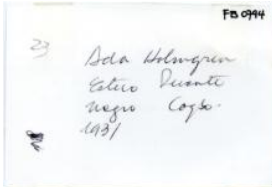 FB 0994
23
Ada Holmgren
Estero Puente
negro Coqbo.
1931